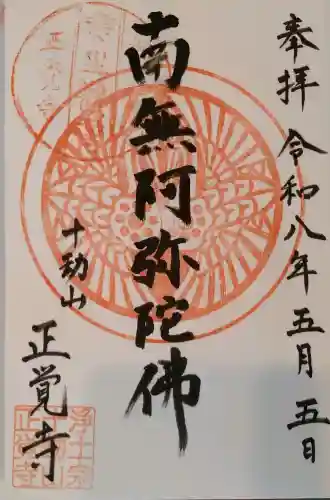 奉拝 令和八年五月五日
南無阿弥陀佛
十劫山
正覚寺
浄土宗
正覚寺